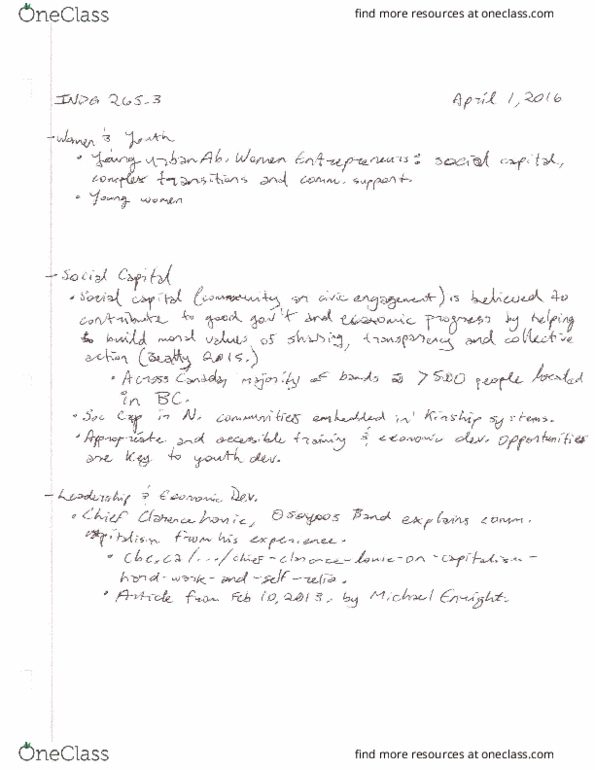 OneClass
find more resources at oneclass.com
INDG 265.3 April 1, 2016
- Women & Youth
• Young Urban Ab. Women Entrepreneurs: social capital,
complex transitions and comm. support.
• Young women
- Social Capital
• Social capital (community or civic engagement) is believed to
contribute to good gov't and economic progress by helping
to build moral values of sharing, transparency and collective
action (Beatty 2015.)
• Across Canada, majority of bands 500 people located
in BC.
• Soc Cap in N. communities embedded in Kinship systems.
• Appropriate and accessible training & economic dev. opportunities
are key to youth dev.
- Leadership & Economic Dev.
• Chief Clarence Louie, Osoyoos Band explains comm.
capitalism from his experience.
• cbc.ca/.../chief-clarence-louie-on-capitalism-
hard-work-and-self-relia.
• Article from Feb 10, 2013, by Michael Enright.
OneClass
find more resources at oneclass.com